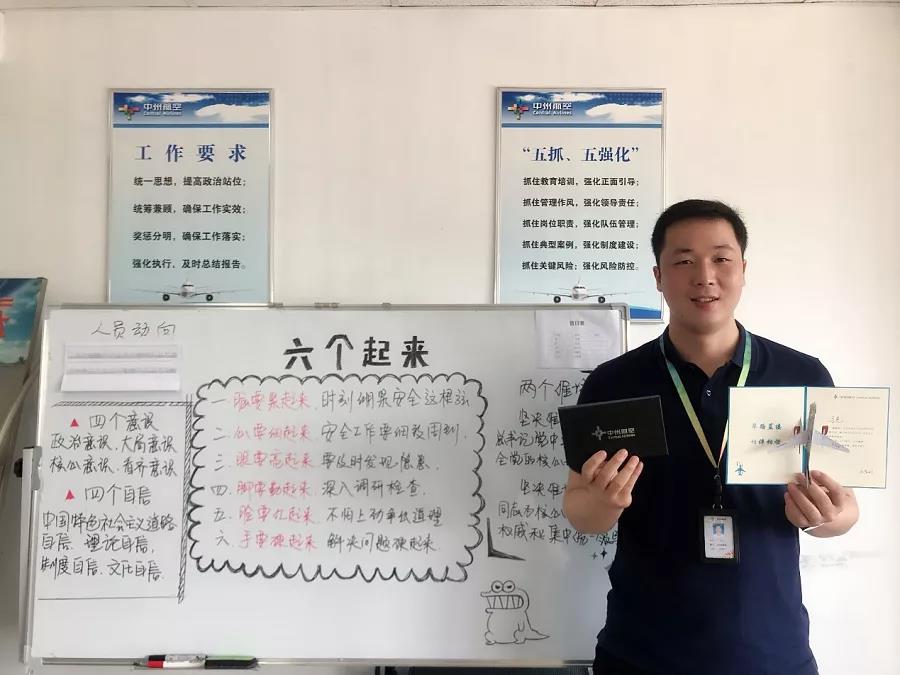 中州航空
Central Airlines
工作要求
统一思想，提高政治站位；
统筹兼顾，确保工作实效；
奖惩分明，确保工作落实；
强化执行，及时总结报告。
中州航空
Central Airlines
“五抓、五强化”
抓住教育培训，强化正面引导；
抓住管理作风，强化领导责任；
抓住岗位职责，强化队伍管理；
抓住典型案例，强化制度建设；
抓住关键风险；强化风险防控。
人员动向
▲四个意识
政治意识、大局意识
核心意识、看齐意识
▲四个自信
中国特色社会主义道路
自信、理论自信、
制度自信、文化自信.
六个起来
一.脑要紧起来,时刻绷紧安全这根弦
二.心要细起来,安全工作要细致周到,
三.眼要高起来,要及时发现隐患.
四.脚要勤起来,深入调研检查.
五.脸要红起来,不怕上劲
六.手要硬起来 解决问题硬起来.
值日表
两个维
坚决维
总书记党中
全党的核心
坚决维
权威和集中统一
中州航空